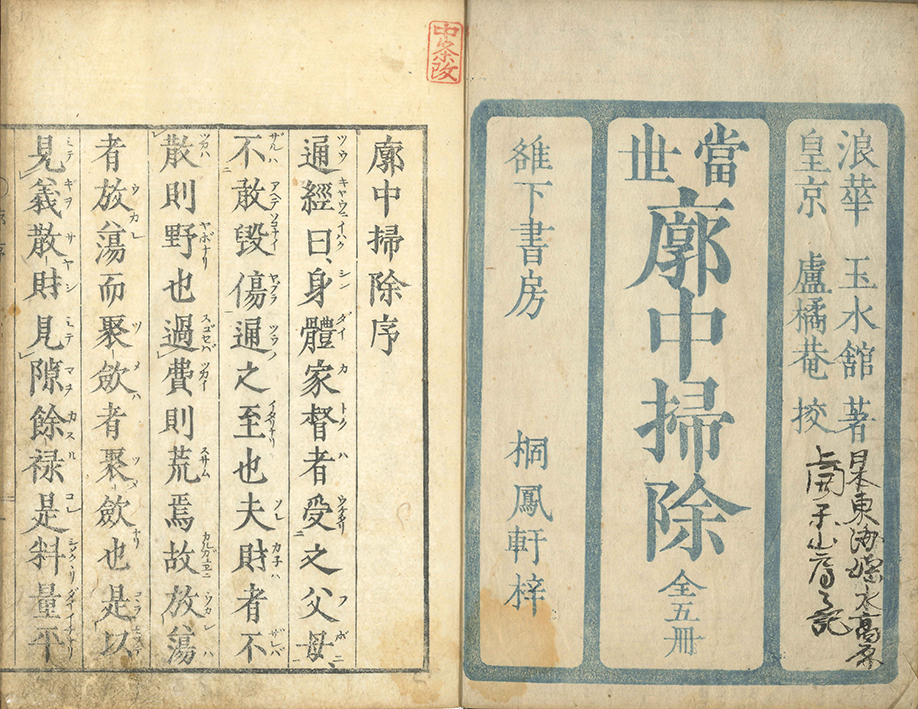 浪華 玉水館 著
皇京 盧橘菴 挍
當世
廓中掃除 全五冊
雒下書房 桐鳳軒梓
中条改
廓中掃除序
通經曰、身體家督者受之父母、
不敢毀傷通之至也夫財者不
散則野也過費則荒焉故放蕩
者放蕩而聚斂者聚斂也是以
見義散財見隙餘禄是料量平